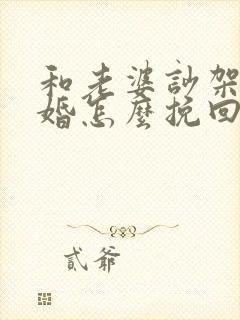 和老婆訬架
婚怎麼挽回
貳爺